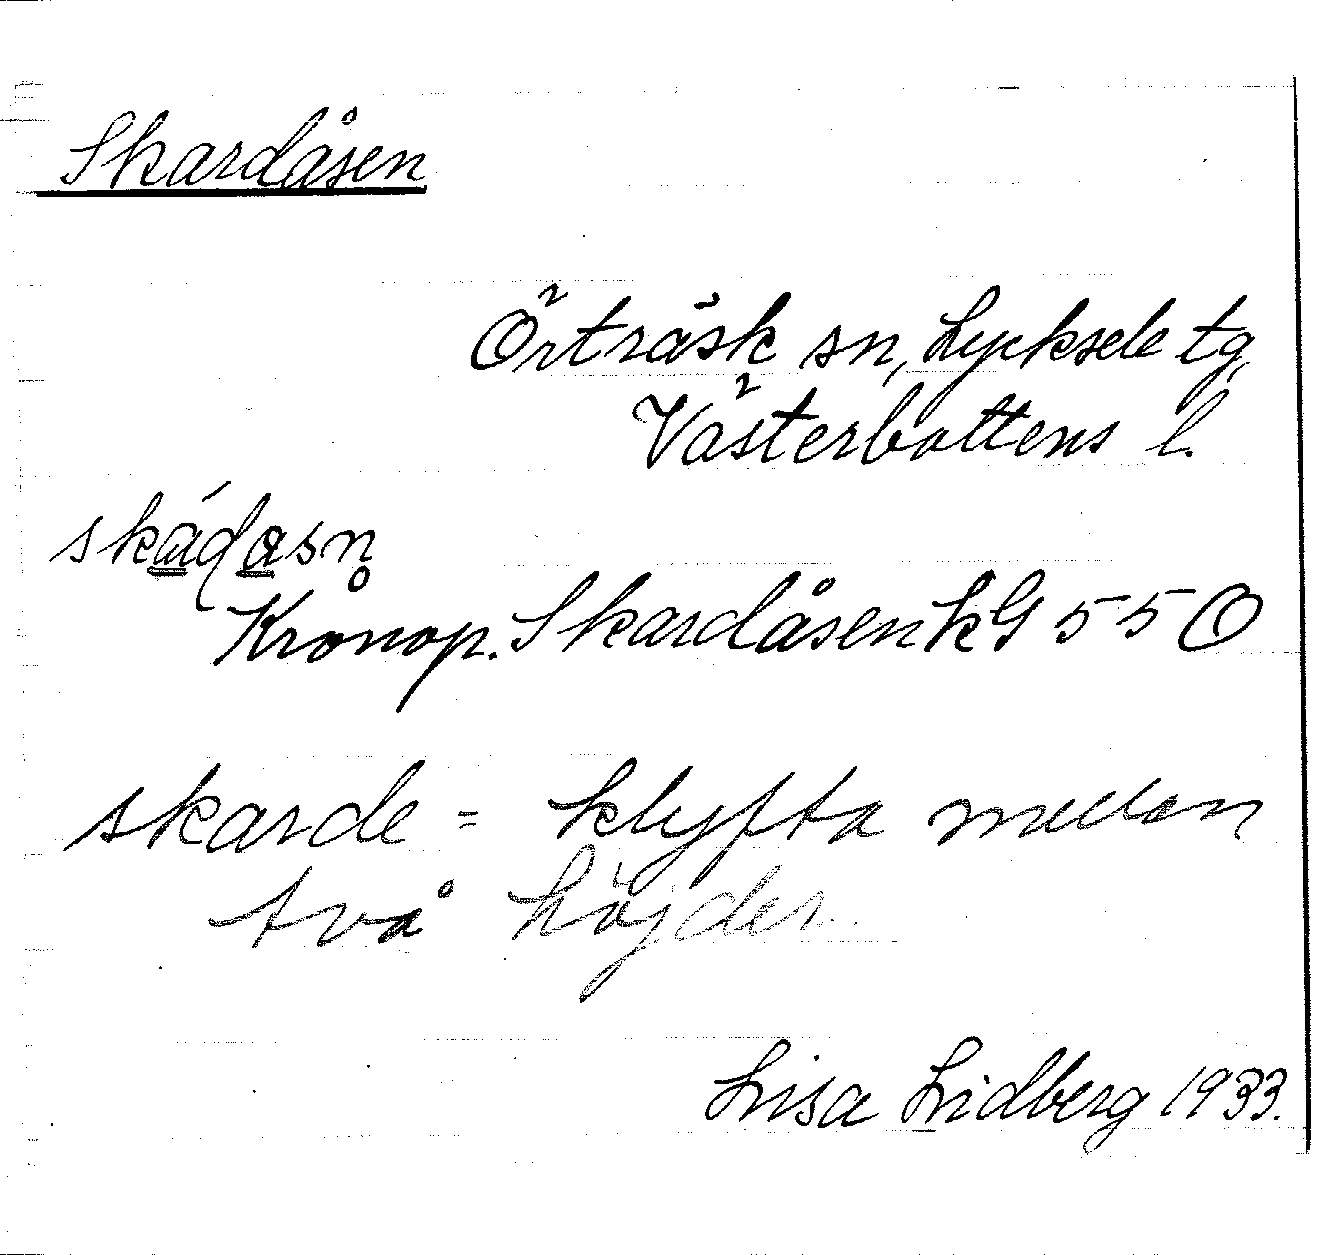 Skardåsen
Örträsk sn, Lycksele tg,
Västerbottens l.
Kronop. Skardåsen kG 55 O
skarde = klyfta mellan
två höjder.
Lisa Lidberg 1933.